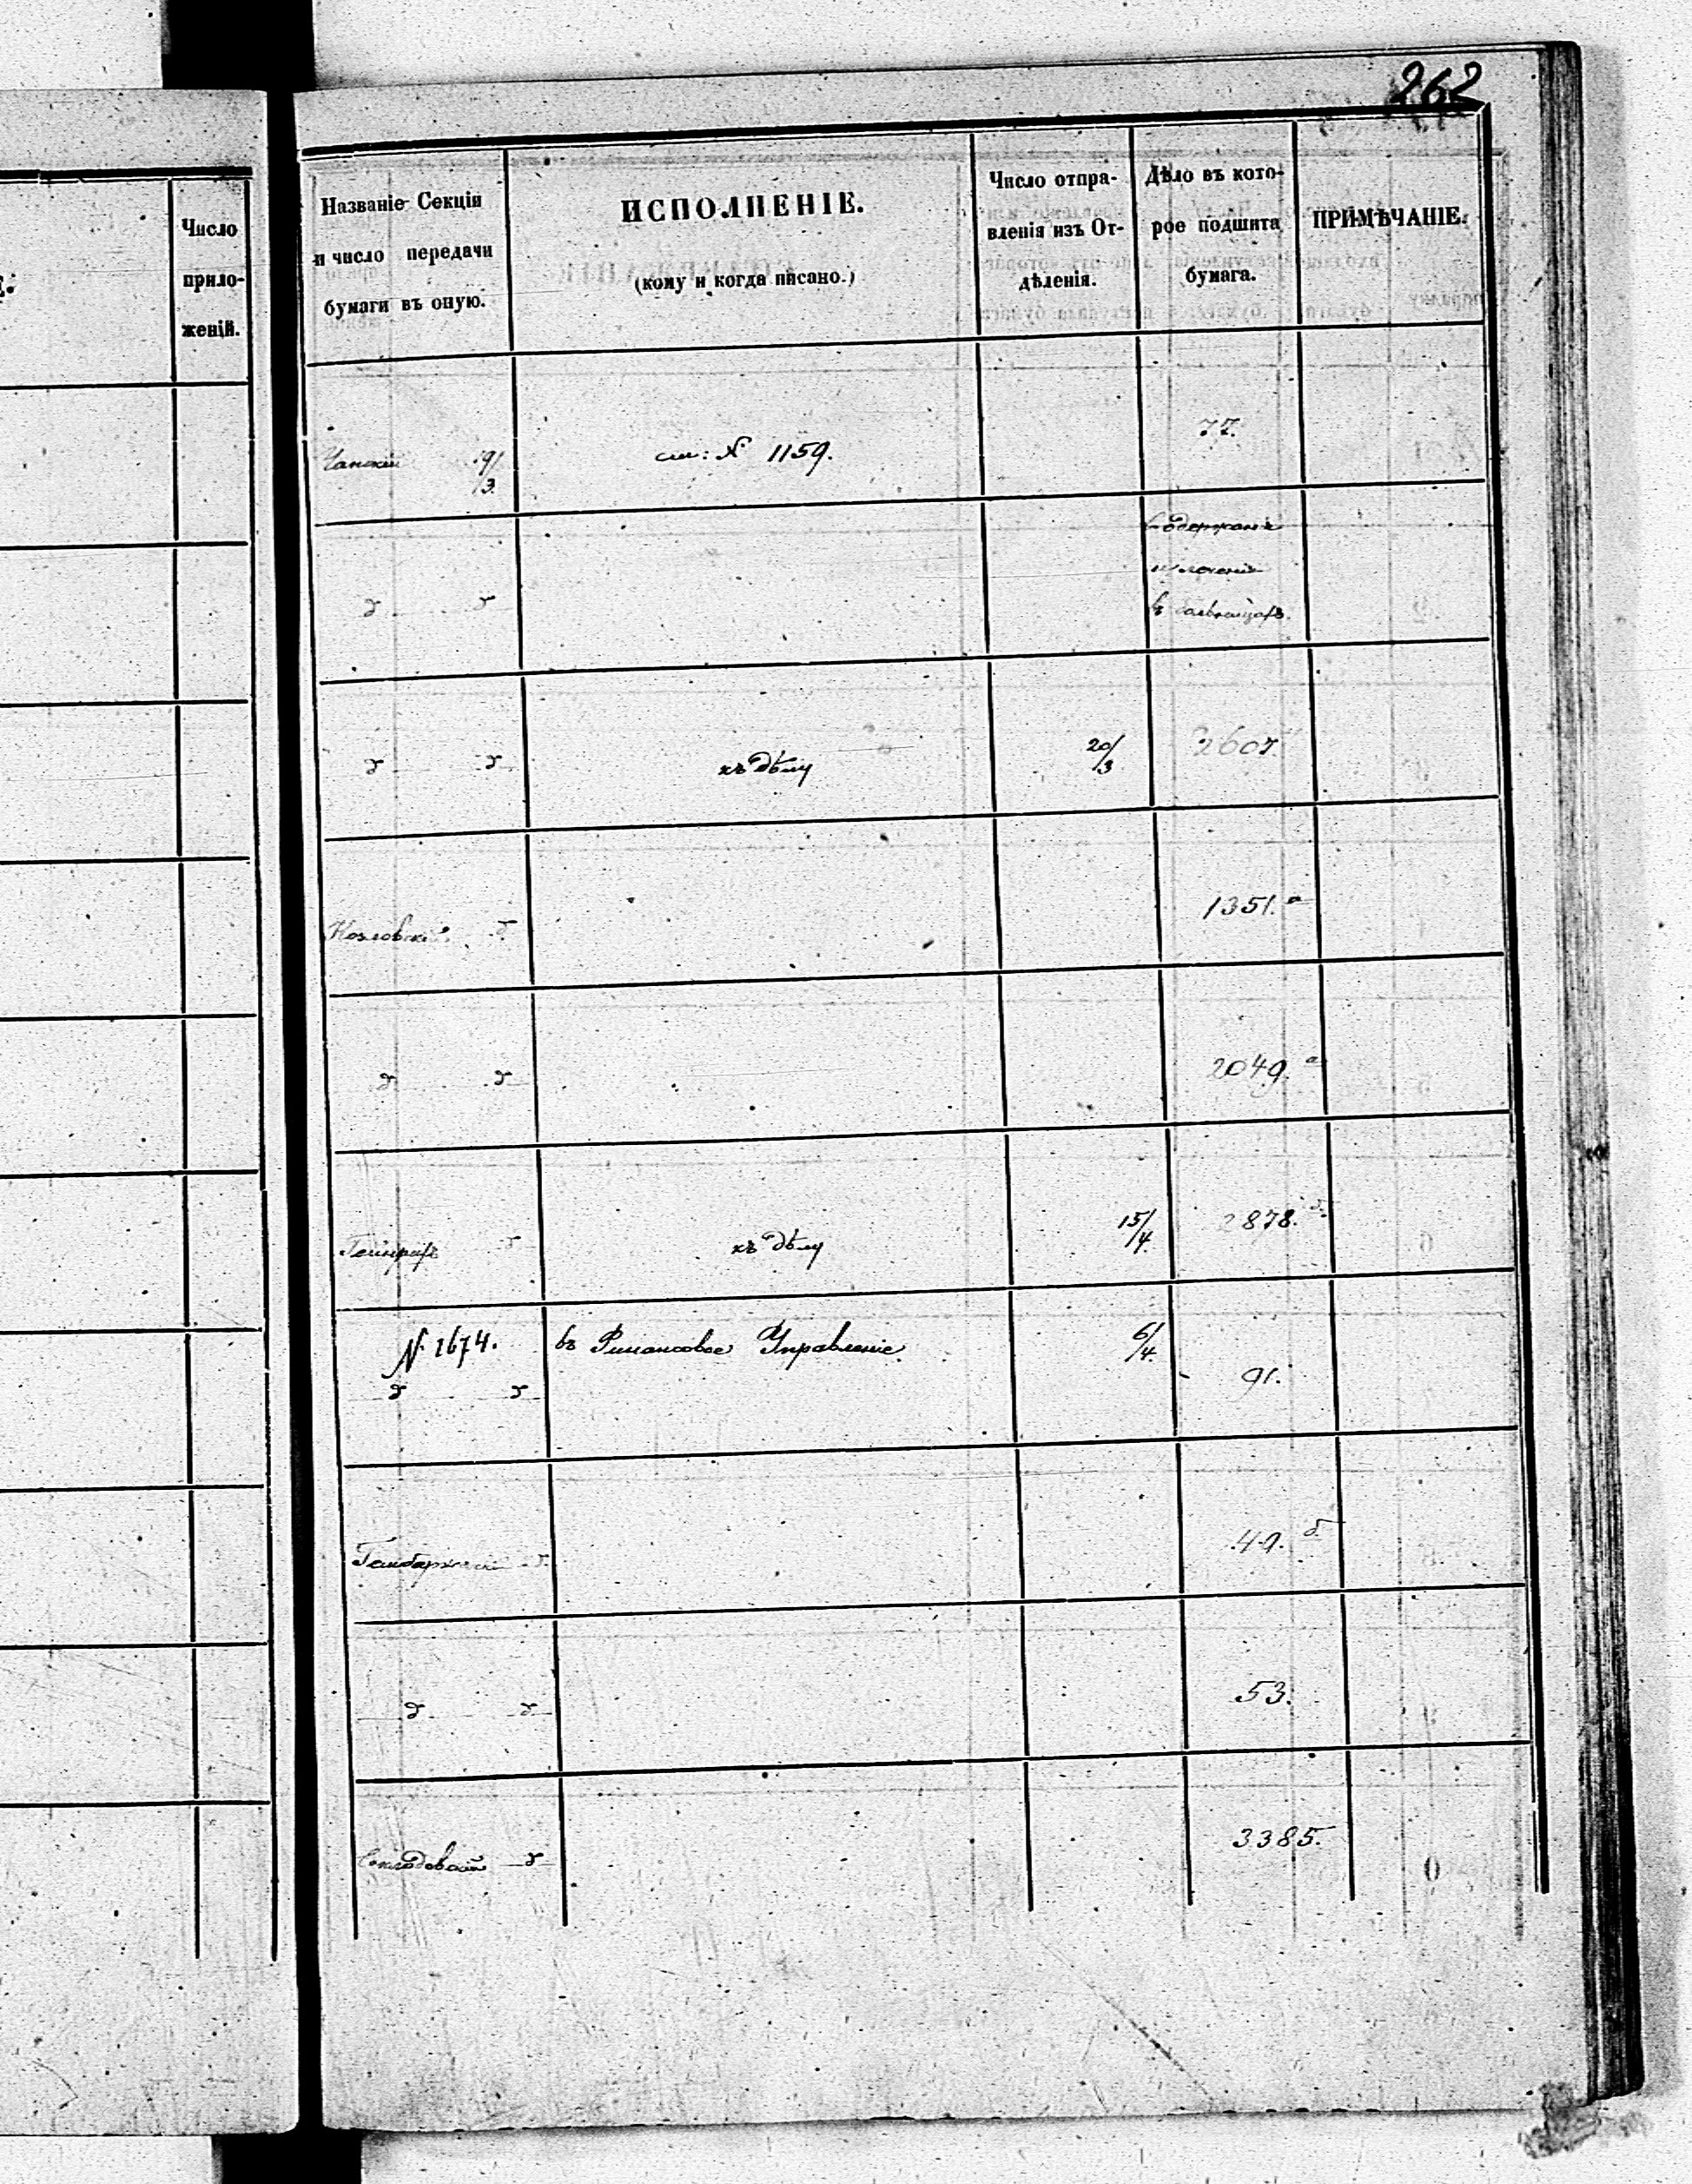 262
Е.
Число
прило-
женій.
Названіе Секціи
и число передачи
бумаги въ оную.
ИСПОЛНЕНІЕ.
(кому и когда писано.)
Число отпра-
вленія изъ От-
дѣленія.
Дѣло въ кото-
рое подшита
бумага.
ПРИМѢЧАНІЕ.
19/3
см: № 1159.
77.
Содержаніе
и леченіе
въ
къ дѣлу
20/3
2607.
Козловскій
1351. а
2049. а
къ дѣлу
15/4
2878. б.
№ 2674.
въ Финансовое Управленіе
6/4
91.
49. б.
53.
3385.